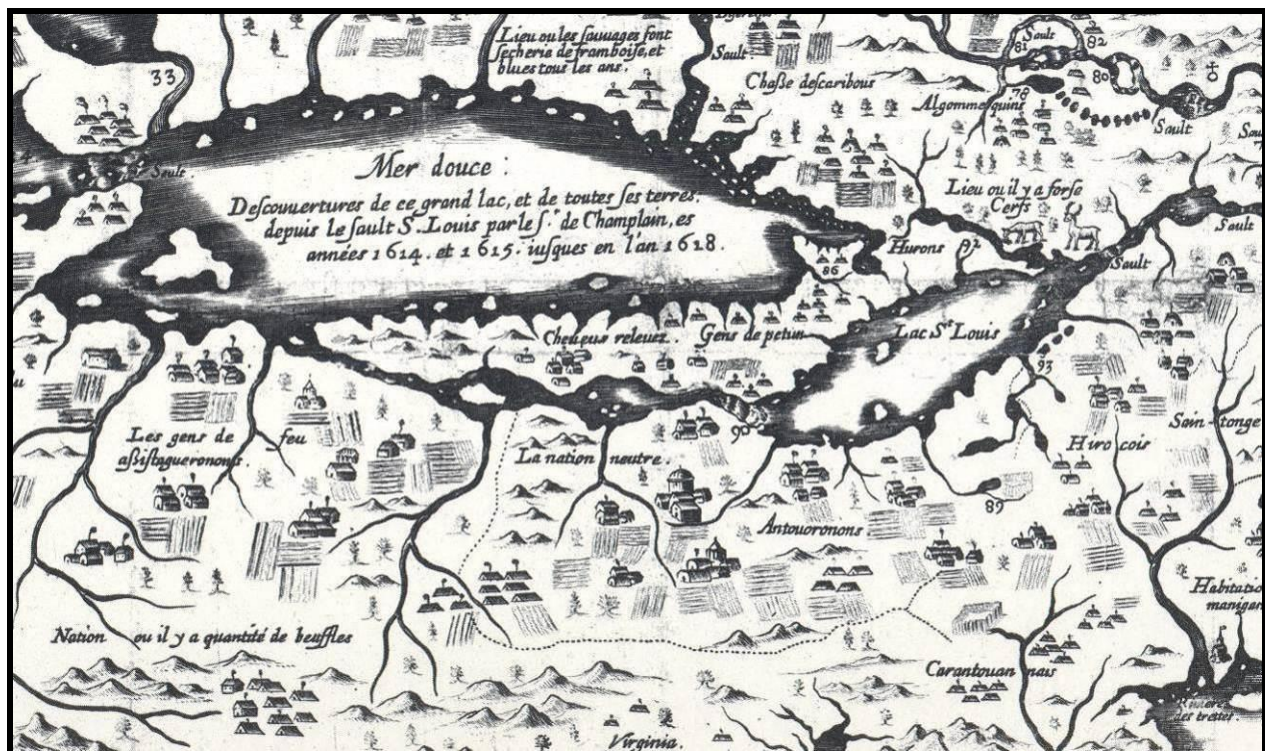 Lieu ou les sauuages font
secherie de framboise, et
blues tous les ans.
Sault
Sault
81
82
80
78
33
Chasse des caribous
Algommequins
Sault
Sault
Mer douce :
Descouuertures de ce grand lac, et de toutes ses terres.
depuis le sault S. Louis par le sr. de Champlain, es
années 1614. et 1615. iusques en l'an 1618.
Lieu ou il y a forse
Cerfs
Sault
Hurons
92
Sault
86
Cheueux releuez.
Gens de petun
Lac St Louis
93
Les gens de feu
assistagueronons.
90
La nation neutre.
Hirocois
Sain-tonge
89
Antouoronons
Habitatio
manigan
Nation ou il y a quantité de beuffles
Carantouannais
Riuiere
des trettes.
Virginia.